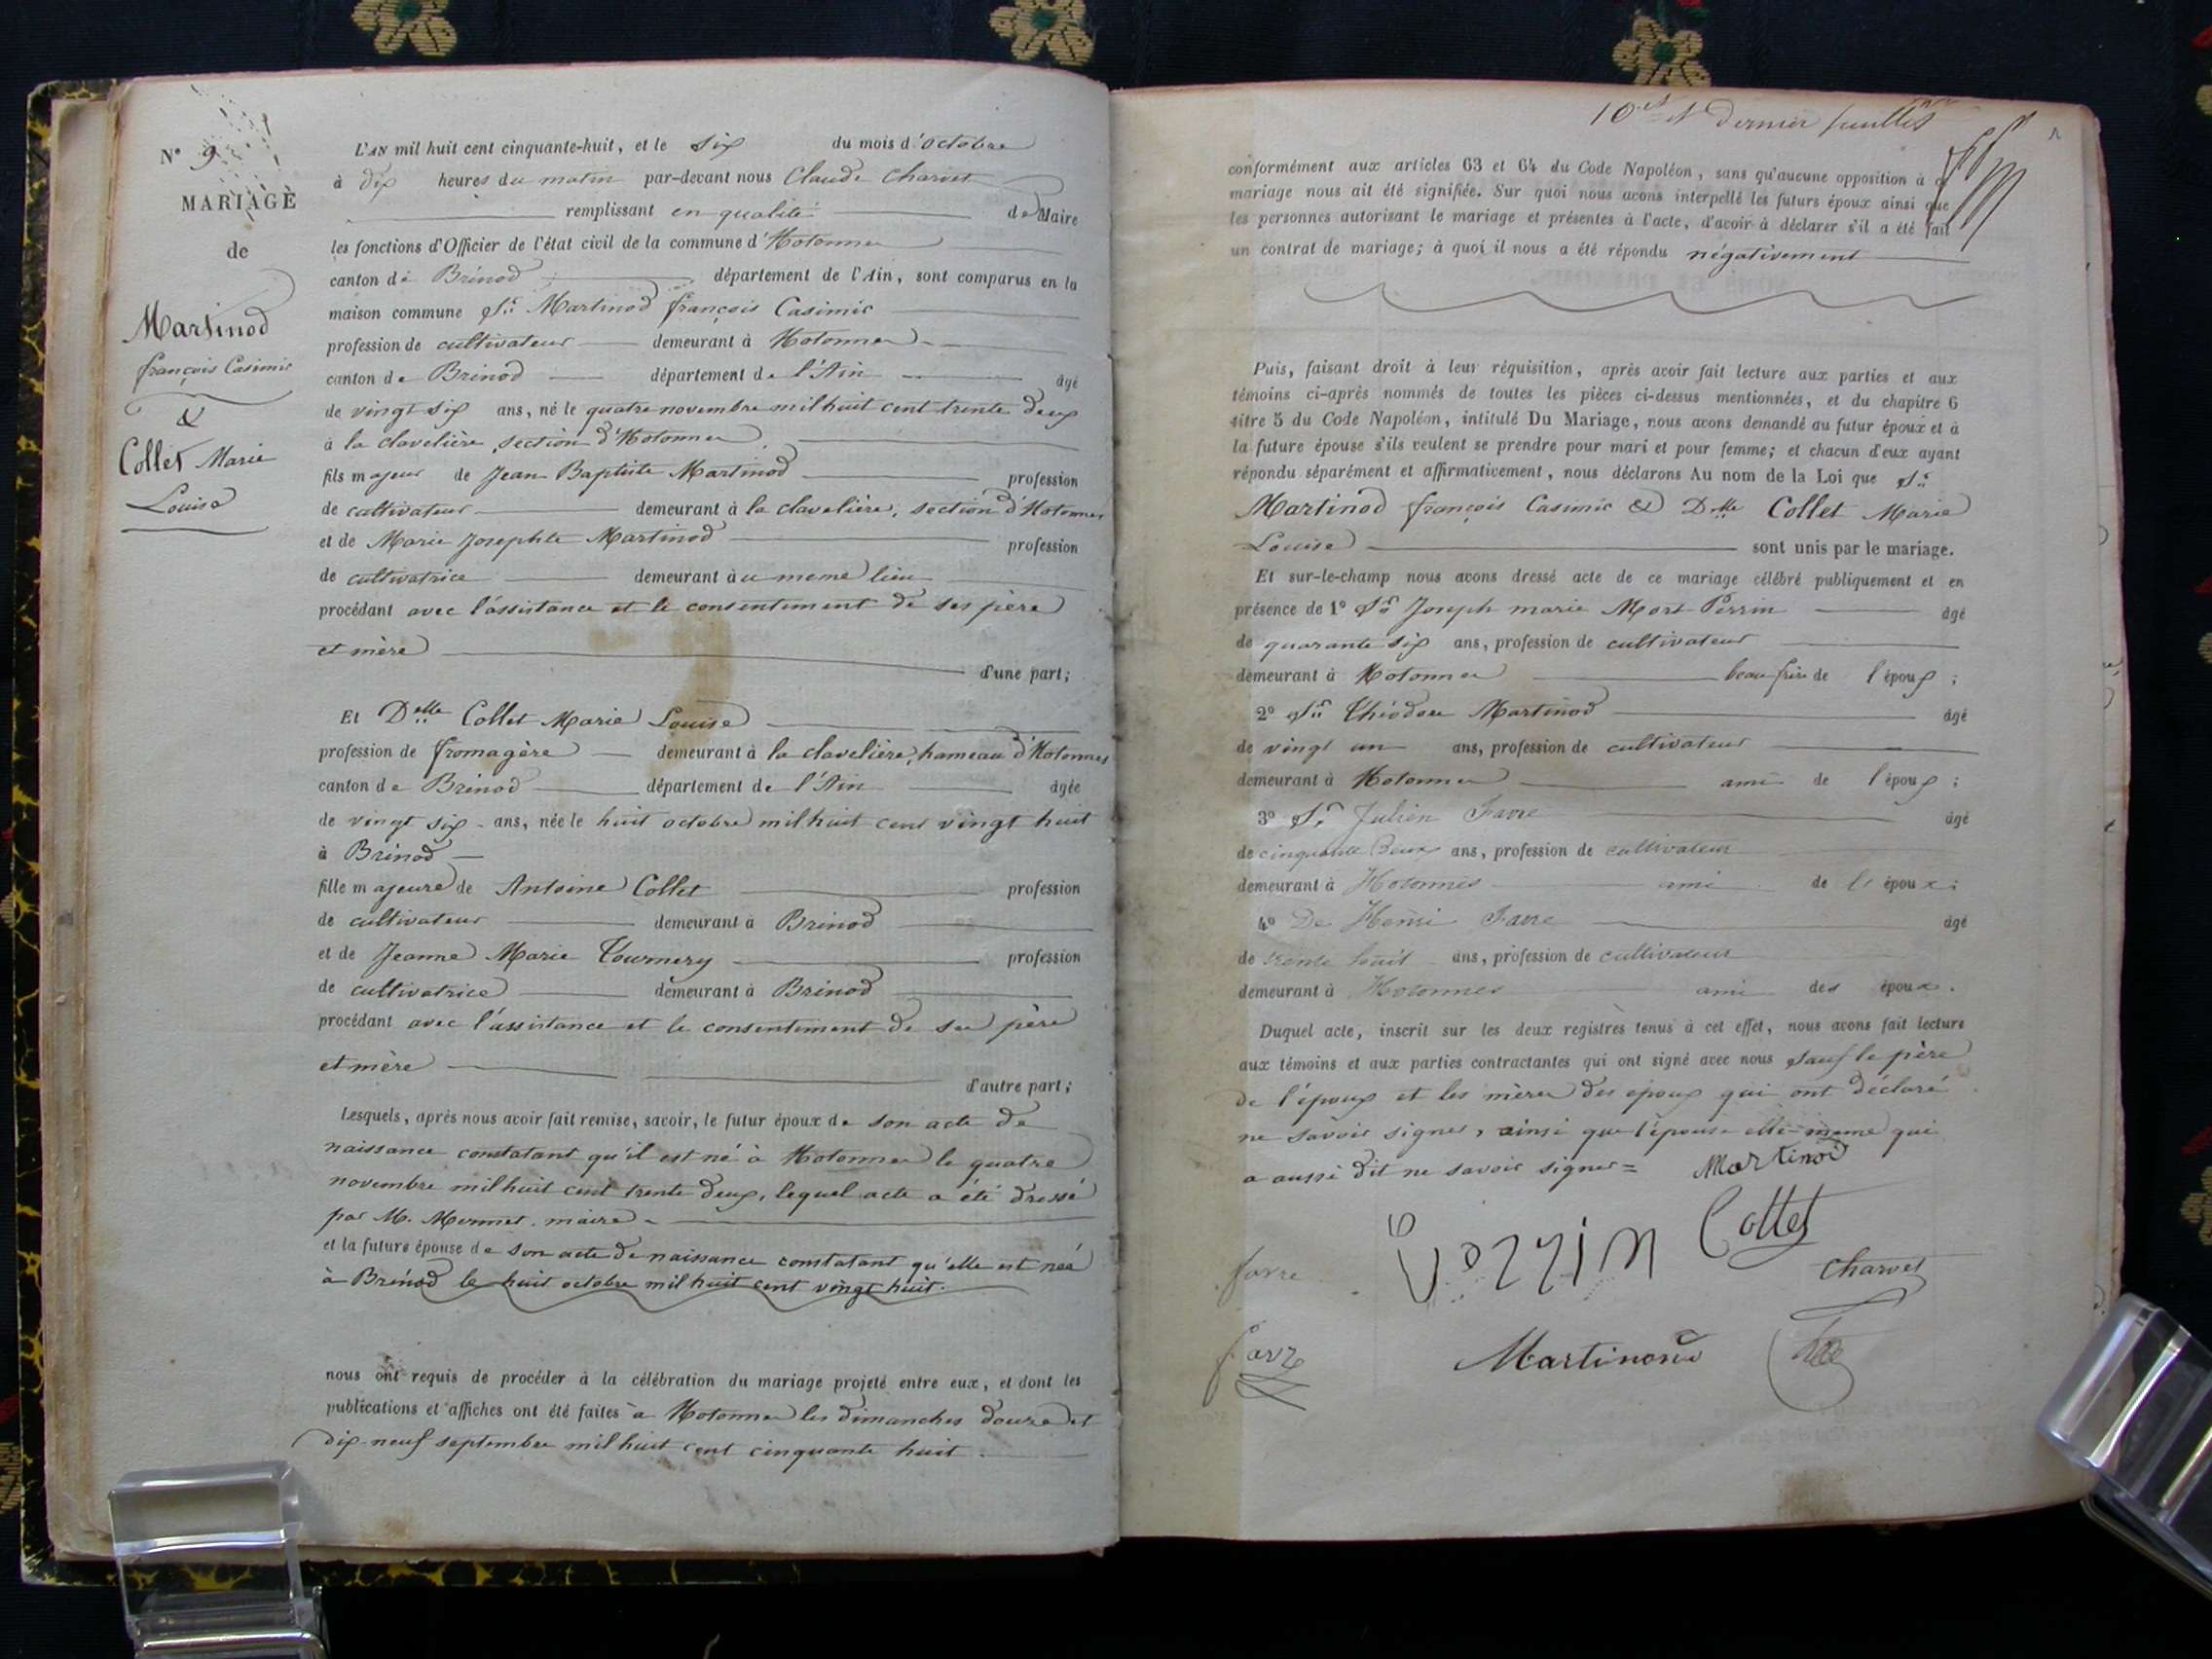 N° 9.
MARIAGE
de
Martinod
françois Casimir
&
Collet Marie
Louise
L'AN mil huit cent cinquante-huit, et le six du mois d'octobre
à dix heures du matin par-devant nous Claude Charvet
remplissant en qualité de Maire
les fonctions d'Officier de l'état civil de la commune d'Hotonnes
canton de Brénod département de l'Ain, sont comparus en la
maison commune Sr. Martinod françois Casimir
profession de cultivateur demeurant à Hotonnes
canton de Brénod département de l'Ain âgé
de vingt six ans, né le quatre novembre mil huit cent trente deux
à la clavelière, section d'Hotonnes
fils majeur de Jean Baptiste Martinod profession
de cultivateur demeurant à la clavelière, section d'Hotonnes
et de Marie Josephte Martinod profession
de cultivatrice demeurant au meme lieu
procédant avec l'assistance et le consentement de ses père
et mère d'une part;
Et Delle Collet Marie Louise
profession de fromagère demeurant à la clavelière, hameau d'Hotonnes
canton de Brénod département de l'Ain âgée
de vingt six ans, née le huit octobre mil huit cent vingt huit
à Brénod
fille majeure de Antoine Collet profession
de cultivateur demeurant à Brénod
et de Jeanne Marie Tournery profession
de cultivatrice demeurant à Brénod
procédant avec l'assistance et le consentement de ses père
et mère d'autre part;
Lesquels, après nous avoir fait remise, savoir, le futur époux de son acte de
naissance constatant qu'il est né à Hotonnes le quatre
novembre mil huit cent trente deux, lequel acte a été dressé
par M. Mermet, maire
et la future épouse de son acte de naissance constatant qu'elle est née
à Brénod le huit octobre mil huit cent vingt huit.
nous ont requis de procéder à la célébration du mariage projeté entre eux, et dont les
publications et affiches ont été faites à Hotonnes les dimanches douze et
dix-neuf septembre mil huit cent cinquante huit.
10e et dernier feuillet
conformément aux articles 63 et 64 du Code Napoléon, sans qu'aucune opposition à ce
mariage nous ait été signifiée. Sur quoi nous avons interpellé les futurs époux ainsi que
les personnes autorisant le mariage et présentes à l'acte, d'avoir à déclarer s'il a été fait
un contrat de mariage; à quoi il nous a été répondu négativement
Puis, faisant droit à leur réquisition, après avoir fait lecture aux parties et aux
témoins ci-après nommés de toutes les pièces ci-dessus mentionnées, et du chapitre 6
titre 5 du Code Napoléon, intitulé Du Mariage, nous avons demandé au futur époux et à
la future épouse s'ils veulent se prendre pour mari et pour femme; et chacun d'eux ayant
répondu séparément et affirmativement, nous déclarons Au nom de la Loi que Sr.
Martinod françois Casimir & Delle Collet Marie
Louise sont unis par le mariage.
Et sur-le-champ nous avons dressé acte de ce mariage célébré publiquement et en
présence de 1° Sr Joseph marie Mort Perrin âgé
de quarante six ans, profession de cultivateur
demeurant à Hotonnes beau frère de l'époux;
2° Sr Théodore Martinod âgé
de vingt un ans, profession de cultivateur
demeurant à Hotonnes ami de l'époux;
3° Sr Julien Favre âgé
de cinquante deux ans, profession de cultivateur
demeurant à Hotonnes ami de l'époux;
4° De Henri Favre âgé
de trente huit ans, profession de cultivateur
demeurant à Hotonnes ami des époux.
Duquel acte, inscrit sur les deux registres tenus à cet effet, nous avons fait lecture
aux témoins et aux parties contractantes qui ont signé avec nous sauf le père
de l'époux et les mères des époux qui ont déclaré
ne savoir signer, ainsi que l'épouse elle-meme qui
a aussi dit ne savoir signer = Martinod
Perrin Collet
favre Charvet
favre Martinod